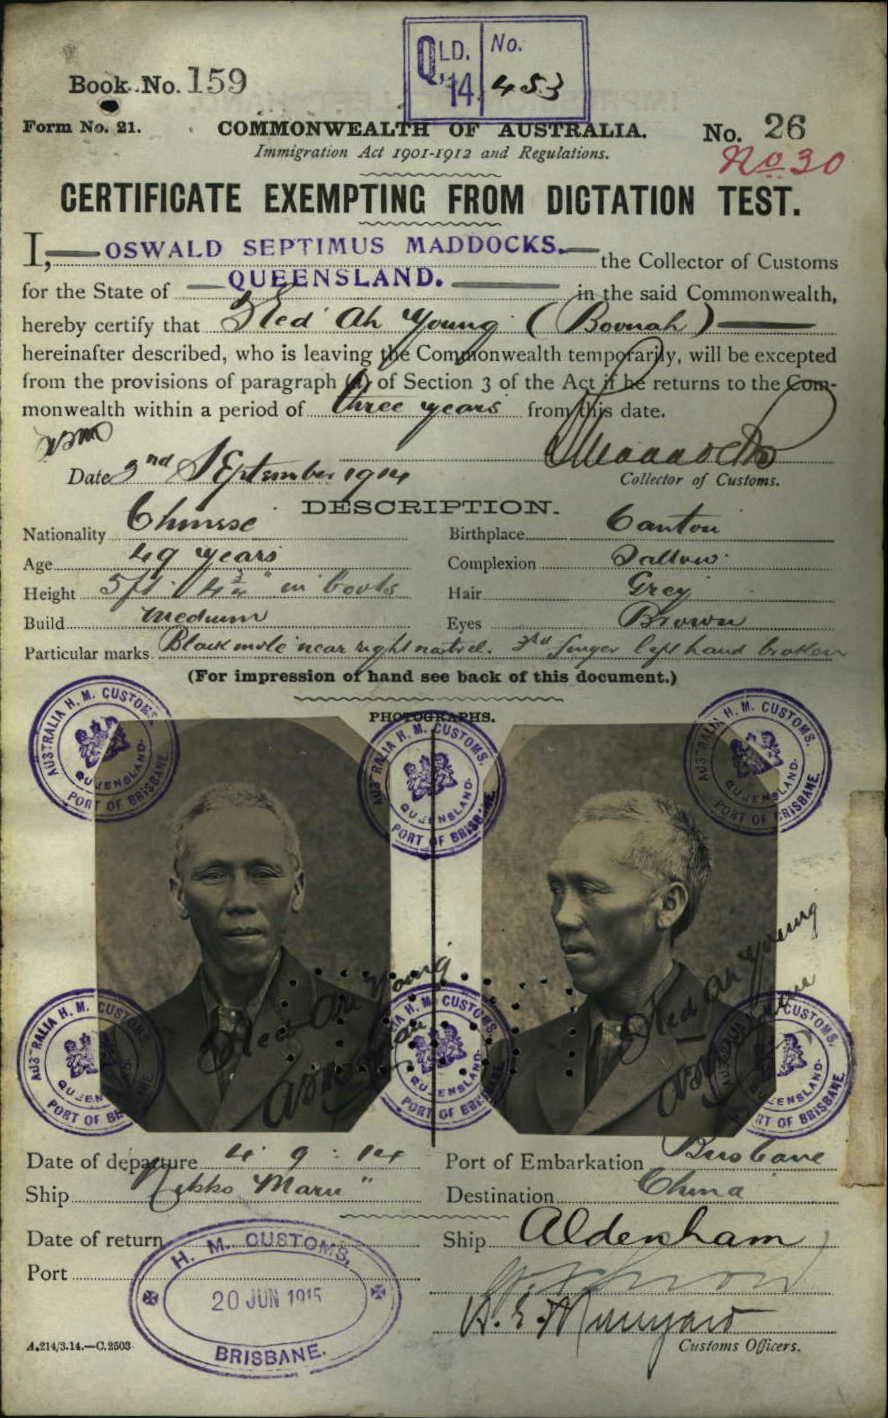 QLD. No.
14 453
Book No. 159
Form No. 21.
COMMONWEALTH OF AUSTRALIA.
No. 26
Immigration Act 1901-1912 and Regulations.
No 30
CERTIFICATE EXEMPTING FROM DICTATION TEST.
I, OSWALD SEPTIMUS MADDOCKS. the Collector of Customs
for the State of QUEENSLAND. in the said Commonwealth,
hereby certify that Ah Young (Boonah)
hereinafter described, who is leaving the Commonwealth temporarily, will be excepted
from the provisions of paragraph (a) of Section 3 of the Act if he returns to the Com-
monwealth within a period of three years from this date.
Date September 1914
Collector of Customs.
DESCRIPTION.
Nationality Chinese Birthplace Canton
Age 49 years Complexion Sallow
Height 5 ft. 4 3/4" in boots Hair Grey
Build medium Eyes Brown
Particular marks Black mole near right nostril. 3rd finger left hand broken
(For impression of hand see back of this document.)
PHOTOGRAPHS.
AUSTRALIA H. M. CUSTOMS. QUEENSLAND. PORT OF BRISBANE.
AUSTRALIA H. M. CUSTOMS. QUEENSLAND. PORT OF BRISBANE.
AUSTRALIA H. M. CUSTOMS. QUEENSLAND. PORT OF BRISBANE.
Ah Young
Ah Young
AUSTRALIA H. M. CUSTOMS. QUEENSLAND. PORT OF BRISBANE.
AUSTRALIA H. M. CUSTOMS. QUEENSLAND. PORT OF BRISBANE.
AUSTRALIA H. M. CUSTOMS. QUEENSLAND. PORT OF BRISBANE.
Date of departure 4 : 9 : 14 Port of Embarkation Brisbane
Ship Nikko Maru" Destination China
Date of return Ship Aldenham
Port
H. M. CUSTOMS,
20 JUN 1915
BRISBANE.
A.214/3.14.—C.2503
Customs Officers.